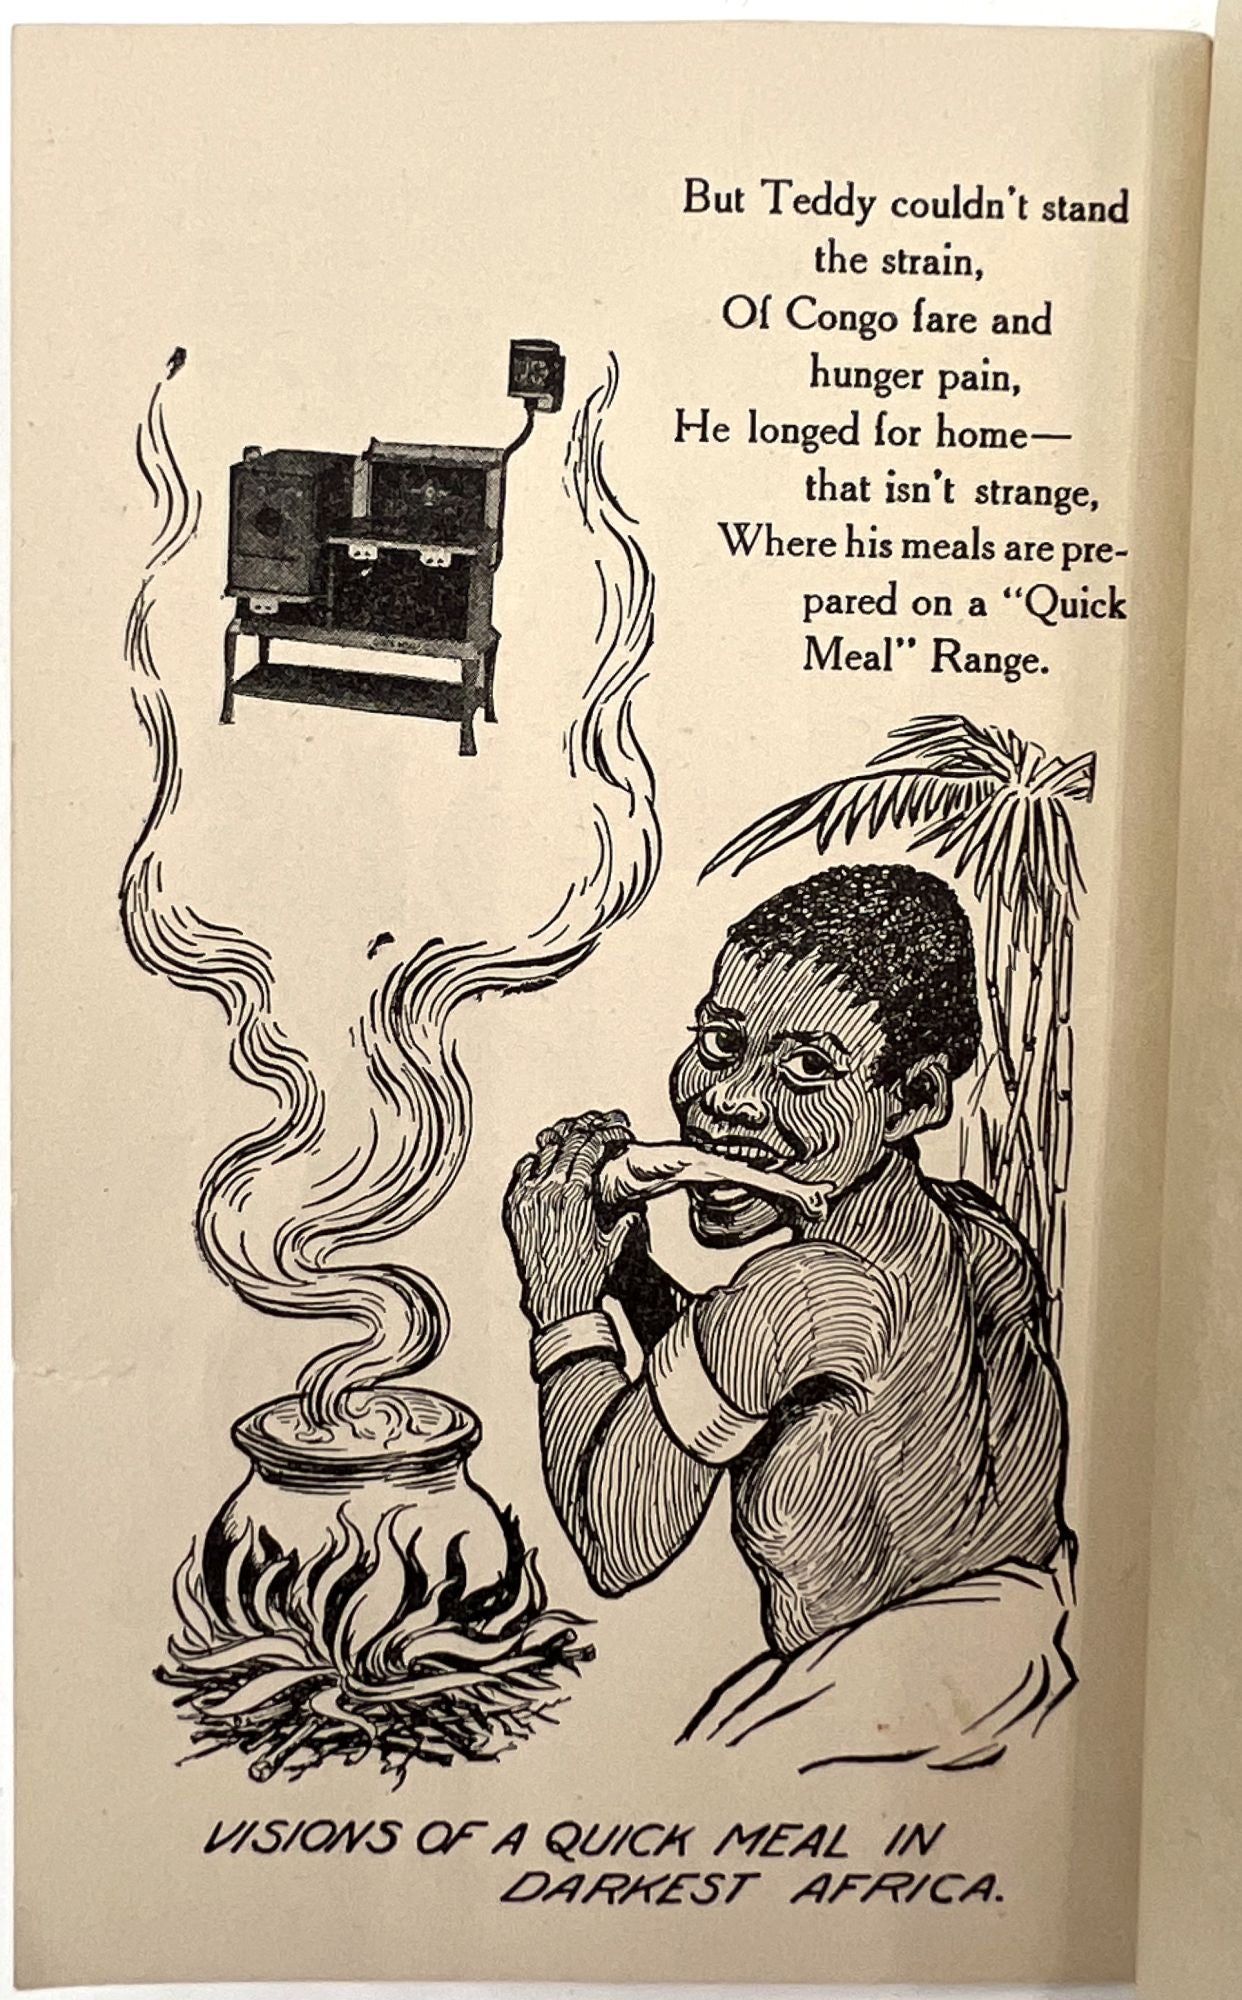 But Teddy couldn't stand
the strain,
Of Congo fare and
hunger pain,
He longed for home—
that isn't strange,
Where his meals are pre-
pared on a "Quick
Meal" Range.
VISIONS OF A QUICK MEAL IN
DARKEST AFRICA.